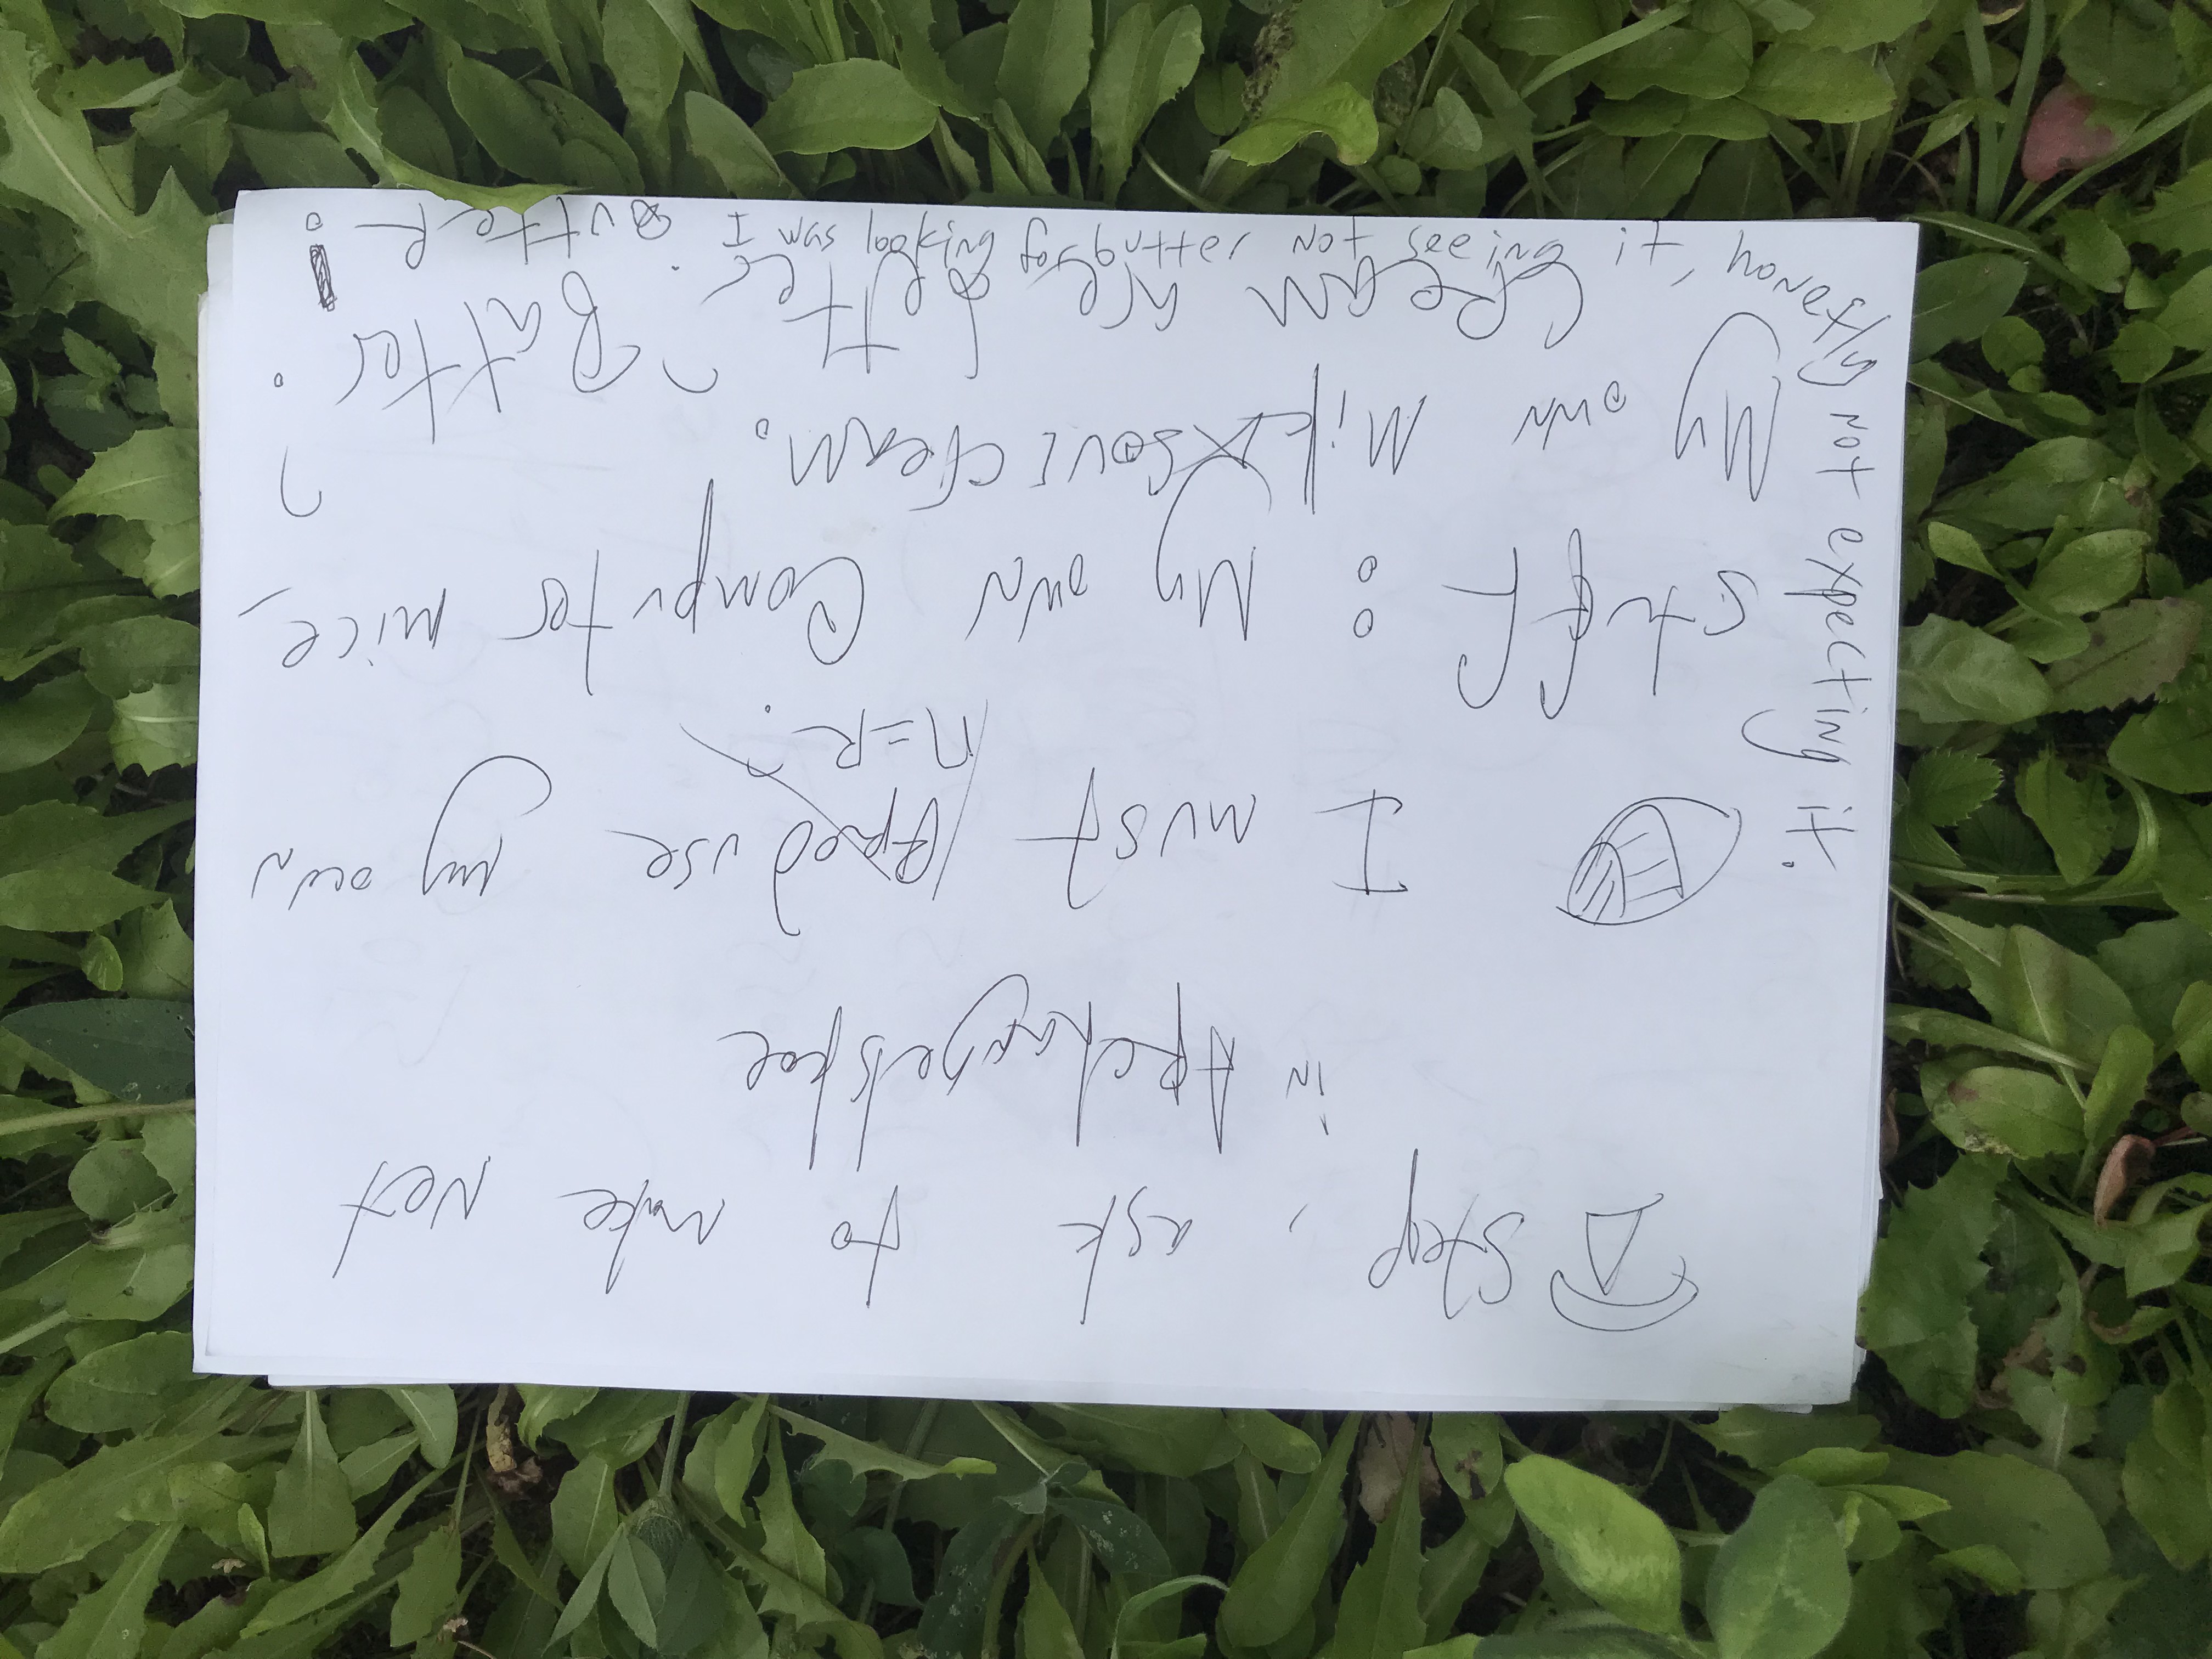 Step, ask to make Net
in Archangelskoe
I must use my own
n=R.
stuff: My own Computor mice,
My own Milk, sour cream.
Cream, gutter. ? Butter?
I was looking for butter, not seeing it, honestly
not expecting it.